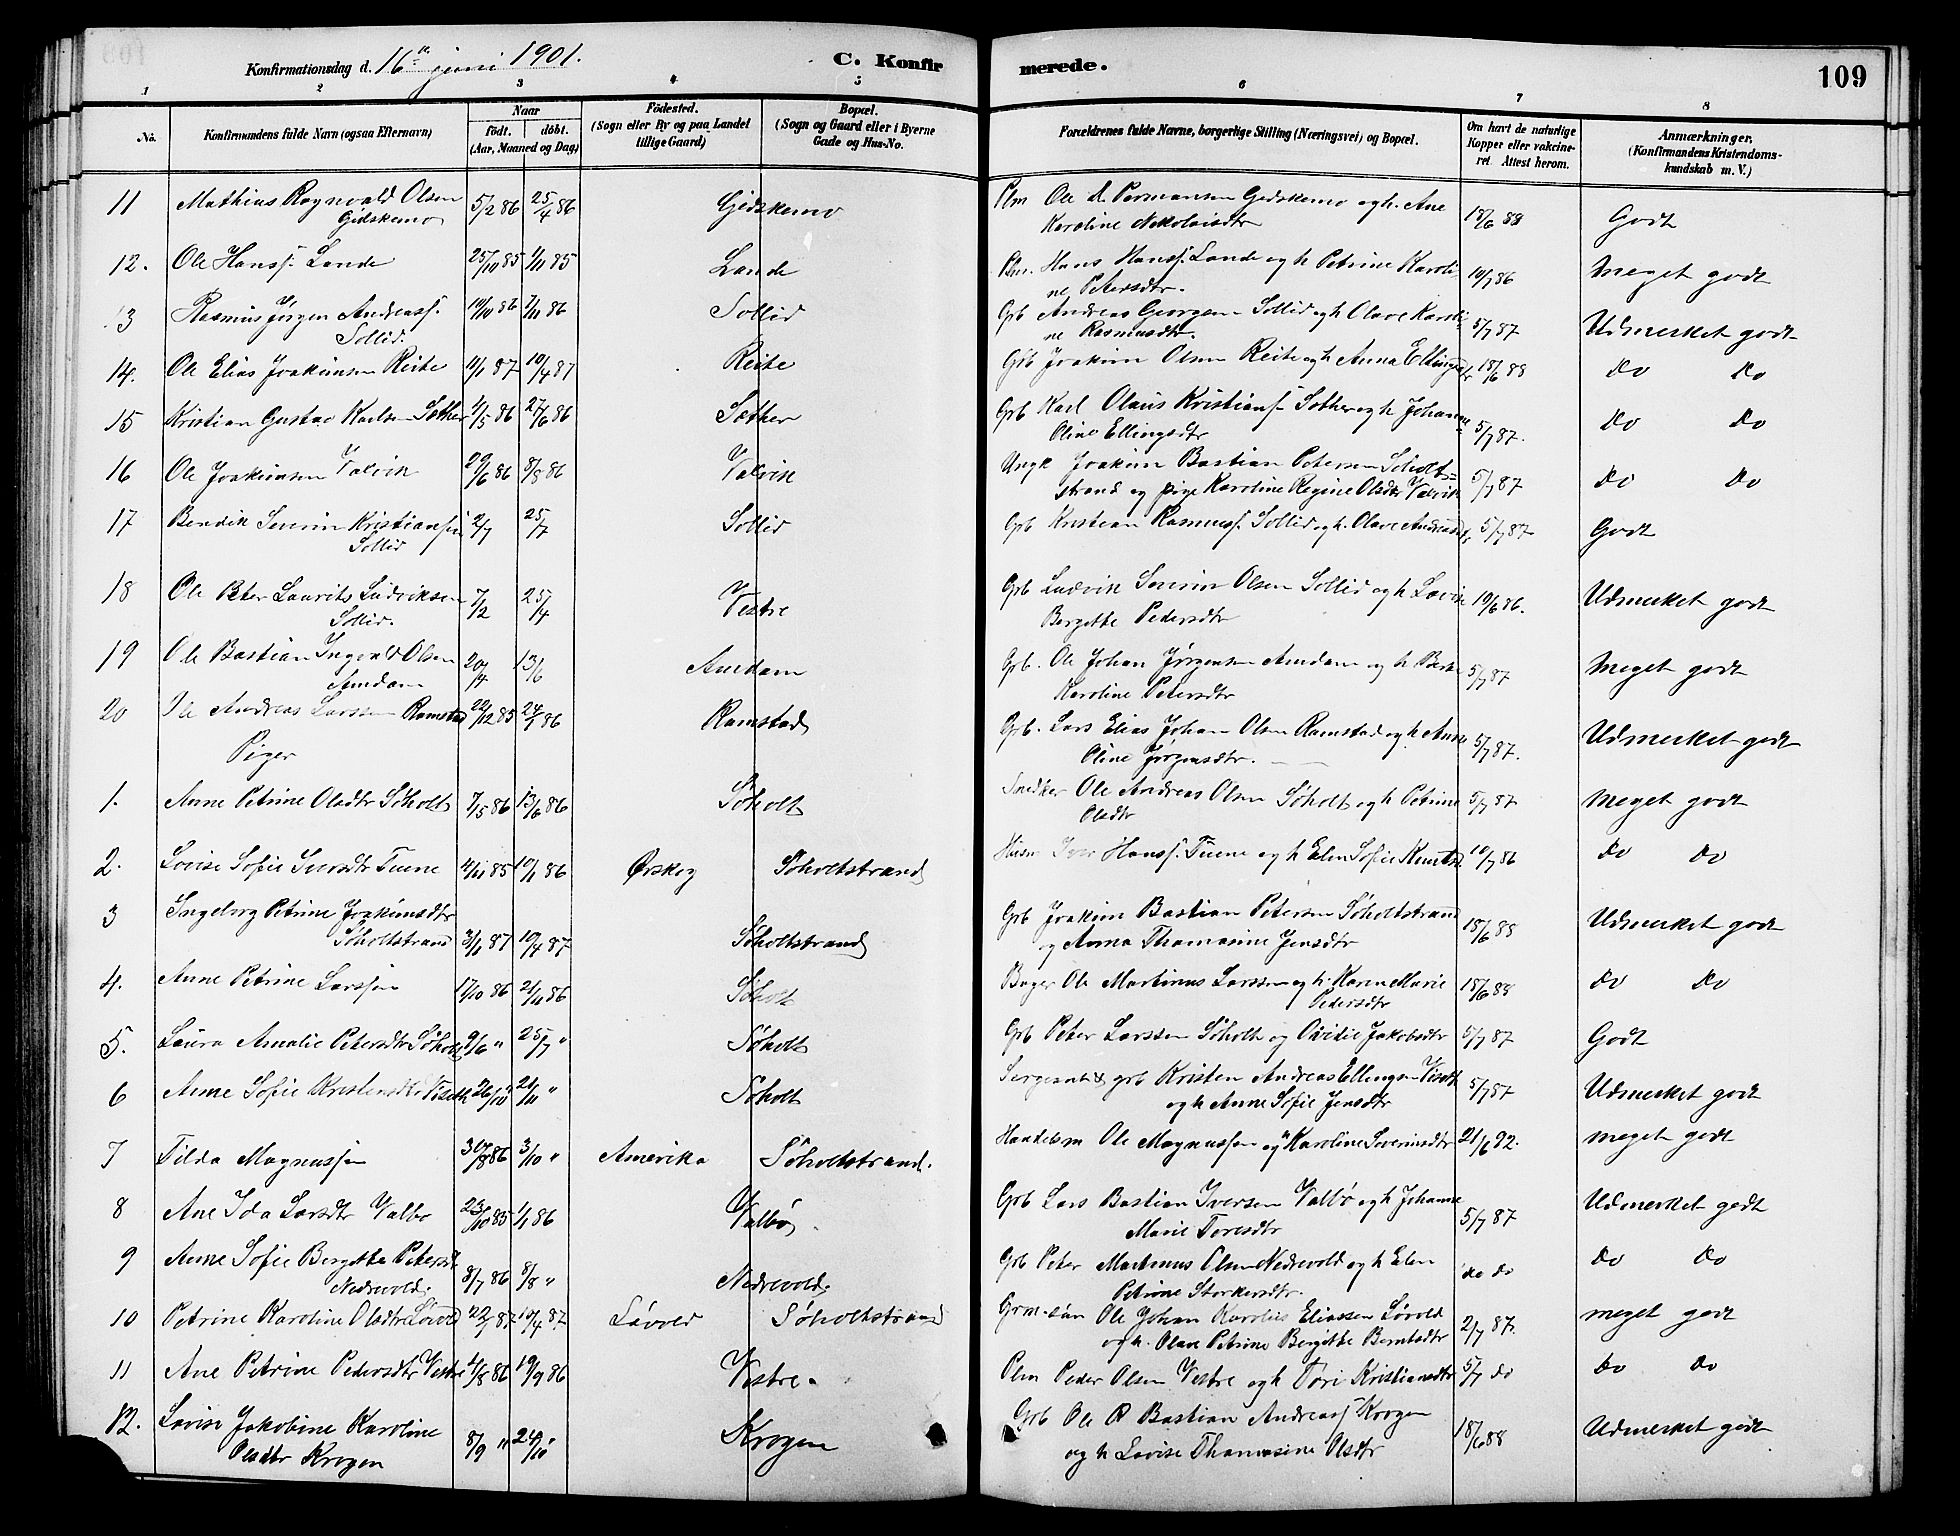 Konfirmationsdag d. 16de juni 1901.
C. Konfirmerede.
109
1 2 3 4 5 6 7 8
No.
Konfirmandens fulde Navn (ogsaa Efternavn)
Naar
födt. döbt.
(Aar, Maaned og Dag)
Födested.
(Sogn eller By og paa Landet
tillige Gaard)
Bopæl.
(Sogn og Gaard eller i Byerne
Gade og Hus-No.
Forældrenes fulde Navne, borgerlige Stilling (Næringsvei) og Bopæl.
Om havt de naturlige
Kopper eller vakcine-
ret. Attest herom.
Anmærkninger,
(Konfirmandens Kristendoms-
kundskab m. V.)
11 Mathius Ragnvald Olsen 5/2 86 25/4 86 Gidskemo Plm Ole A. Permansen Gidskemo og h. Ane 18/6 88 Godt
Gidskemo Karoline Nikolaisdtr
12. Ole Hanss. Lande 25/10 85 1/11 85 Lande Hans Hanss. Lande og h Petrine Karoli- 10/7 86 Meget godt
ne Petersdtr.
13 Rasmus Jørgen Andreass. 10/10 86 7/11 86 Sollid Grb Andreas Georgsen Sollid og h Olave Karoli- 5/7 87 Udmerket godt
Sollid. ne Rasmusdtr.
14. Ole Elias Joakimsen Reite 11/1 87 10/4 87 Reite Grb Joakim Olsen Reite og h Anna Ellingsdtr 18/6 88 do do
15 Kristian Gustav Karlsen Sæther 4/5 86 27/6 86 Sæther Grb Karl Olaus Kristians. Sæther og h Johanne 5/7 87. do do
Oline Ellingsdtr
16 Ole Joakimsen Valvik 29/6 86 8/8 86 Valvik Ungk Joakim Bastian Petersen Søholt- 5/7 87 do do
strand og pige Karoline Regine Olsdtr Valvik
17 Bendik Severin Kristiansen 2/7 25/7 Sollid Grb Kristian Rasmuss. Sollid og h. Olave Andreasdtr 5/7 87 Godt
Sollid
18 Ole Peter Laurits Ludviksen 7/2 25/4 Vestre Grb Ludvik Severin Olsen Sollid og h Lovise 10/6 86. Udmerket godt
Sollid. Bergitte Pedersdtr
19 Ole Bastian Ingvald Olsen 20/4 13/6 Amdam Grb. Ole Johan Jørgensen Amdam og h 5/7 87 Meget godt
Amdam Karoline Petersdtr
20 Ole Andreas Larssen Ramstad 22/12 85 24/1 86 Ramstad Grb. Lars Elias Johan Olsen Ramstad og h Anne 5/7 87. Udmerket godt
Piger Oline Jørgensdtr.
1. Anne Petrine Olsdtr Søholt 7/5 86 13/6 86 Søholt Snedker Ole Andreas Olsen Søholt og h Petrine 5/7 87 Meget godt
Olsdtr
2. Lovise Sofie Iversdtr Tuene 4/11 85 10/1 86 Ørskog Søholtstrand Husm Iver Hanss. Tuene og h Elen Sofie Knutsd. 10/7 86 do do
3 Ingeborg Petrine Joakimsdtr Grb Joakim Bastian Petersen Søholtstrand 18/6 88 Udmerket godt
Søholtstrand 3/1 87 10/4 87 Søholtstrand og Anna Thomasine Jensdtr
4. Anne Petrine Larssen 17/10 86 21/11 86 Søholt Bager Ole Martinus Larssen og h. Karen Marie 18/6 88 do do
Pedersdtr
5. Laura Amalie Petersdtr Søholt 9/6 " 25/7 " Søholt Grb Peter Larssen Søholt og Ovidie Jakobsdtr 5/7 87 Godt
6 Anne Sofie Kristensdtr Viset 26/10 21/11 " Søholt Sergeant & grb Kristen Andreas Ellingsen Viset 5/7 87 Udmerket godt
og h Anne Sofie Jensdtr
7 Tilda Magnussen 30/8 86 3/10 " Amerika Søholtstrand. Handelsm Ole Magnussen og Karoline Severinsdtr 21/6 92. meget godt
8 Ane Ida Larsdtr Valbø 23/10 85 1/1 86 Valbø. Grb Lars Bastian Iversen Valbø og h Johanne 5/7 87 Udmerket godt
Marie Toresdtr
9 Anne Sofie Bergitte Petersdtr 8/7 86 8/8 " Grb Peter Martinus Olsen Nedrevold og h Elen do do do do
Nedrevold. Nedrevold. Petrine Storkersdtr.
10 Petrine Karoline Olsdtr Løvold 22/1 87 10/4 87. Løvold Søholtstrand Ole Johan Karolius Eliassen Løvold 2/7 87. meget godt
og h. Olave Petrine Bergitte Berntsdtr
11 Ane Petrine Pedersdtr Vestre 4/8 86 19/9 86 Vestre. Plm Peder Olsen Vestre og h Tori Kristiansdtr 5/7 do do do
12. Lovise Jakobine Karoline 8/9 " 24/10 " Krogen Grb Ole R Bastian Andreass. Krogen 18/6 88 Udmerket godt
Olsdtr Krogen og h Lovise Thomasine Olsdtr